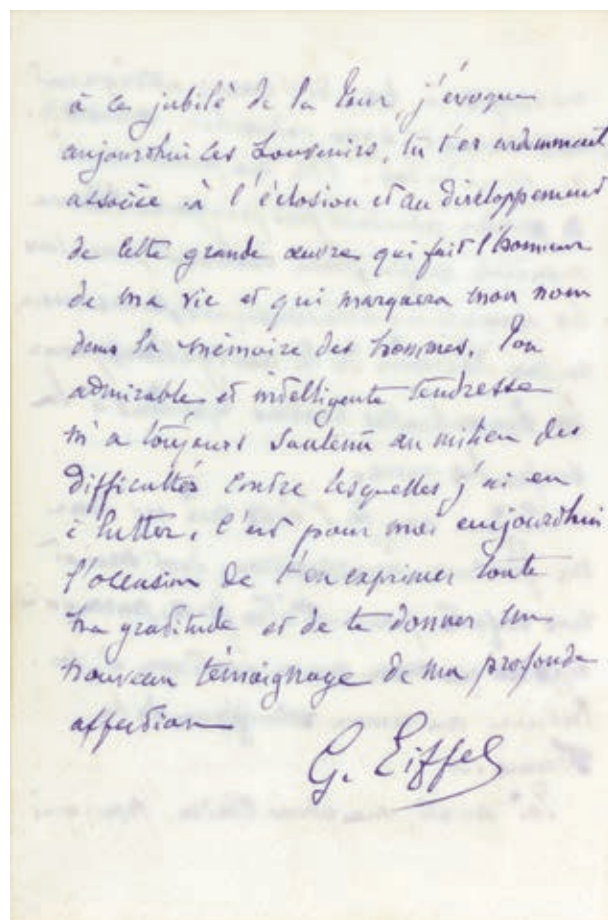 à ce jubilé de la Tour, j'évoque
aujourd'hui ces souvenirs, tu t'es ardemment
associée à l'éclosion et au développement
de cette grande œuvre qui fait l'honneur
de ma vie et qui marquera mon nom
dans la mémoire des hommes. Ton
admirable et intelligente tendresse
m'a toujours soutenu au milieu des
difficultés contre lesquelles j'ai eu
à lutter, c'est pour moi aujourd'hui
l'occasion de t'en exprimer toute
ma gratitude et de te donner un
nouveau témoignage de ma profonde
affection
G. Eiffel